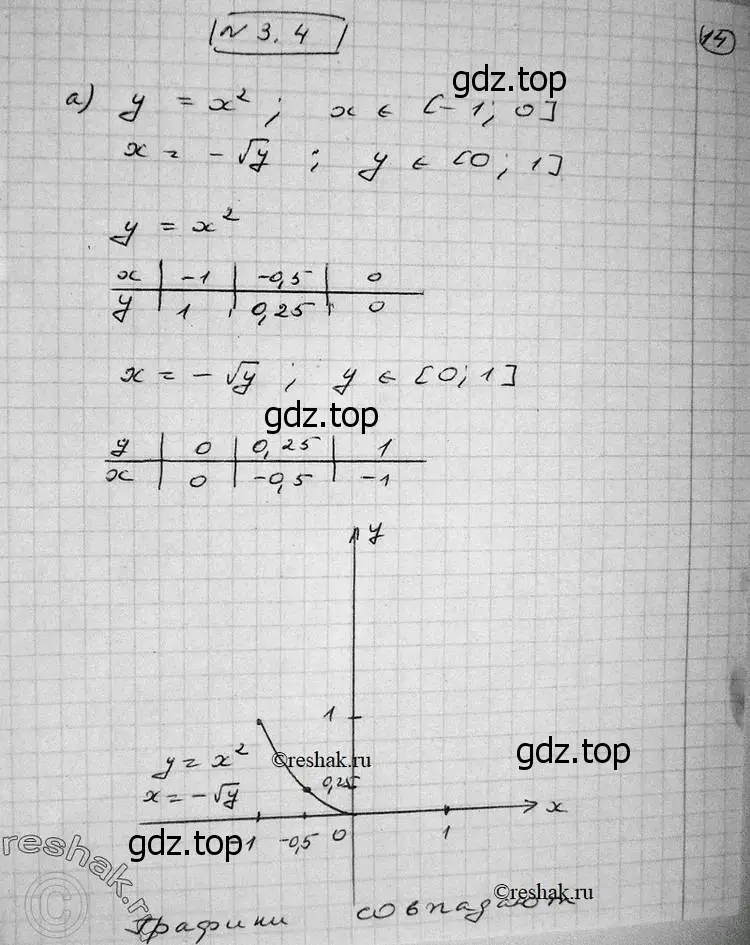 № 3.4
15
gdz.top
а) y = x² ; x ∈ [-1; 0]
x = -√y ; y ∈ [0; 1]
y = x²
x | -1 | -0,5 | 0
y | 1 | 0,25 | 0
x = -√y ; y ∈ [0; 1]
gdz.top
y | 0 | 0,25 | 1
x | 0 | -0,5 | -1
y
1
y = x²
©reshak.ru
gdz.top
x = -√y
0,25
x
gdz.top
-1 -0,5 0 1
reshak.ru
©reshak.ru
Графики совпадают